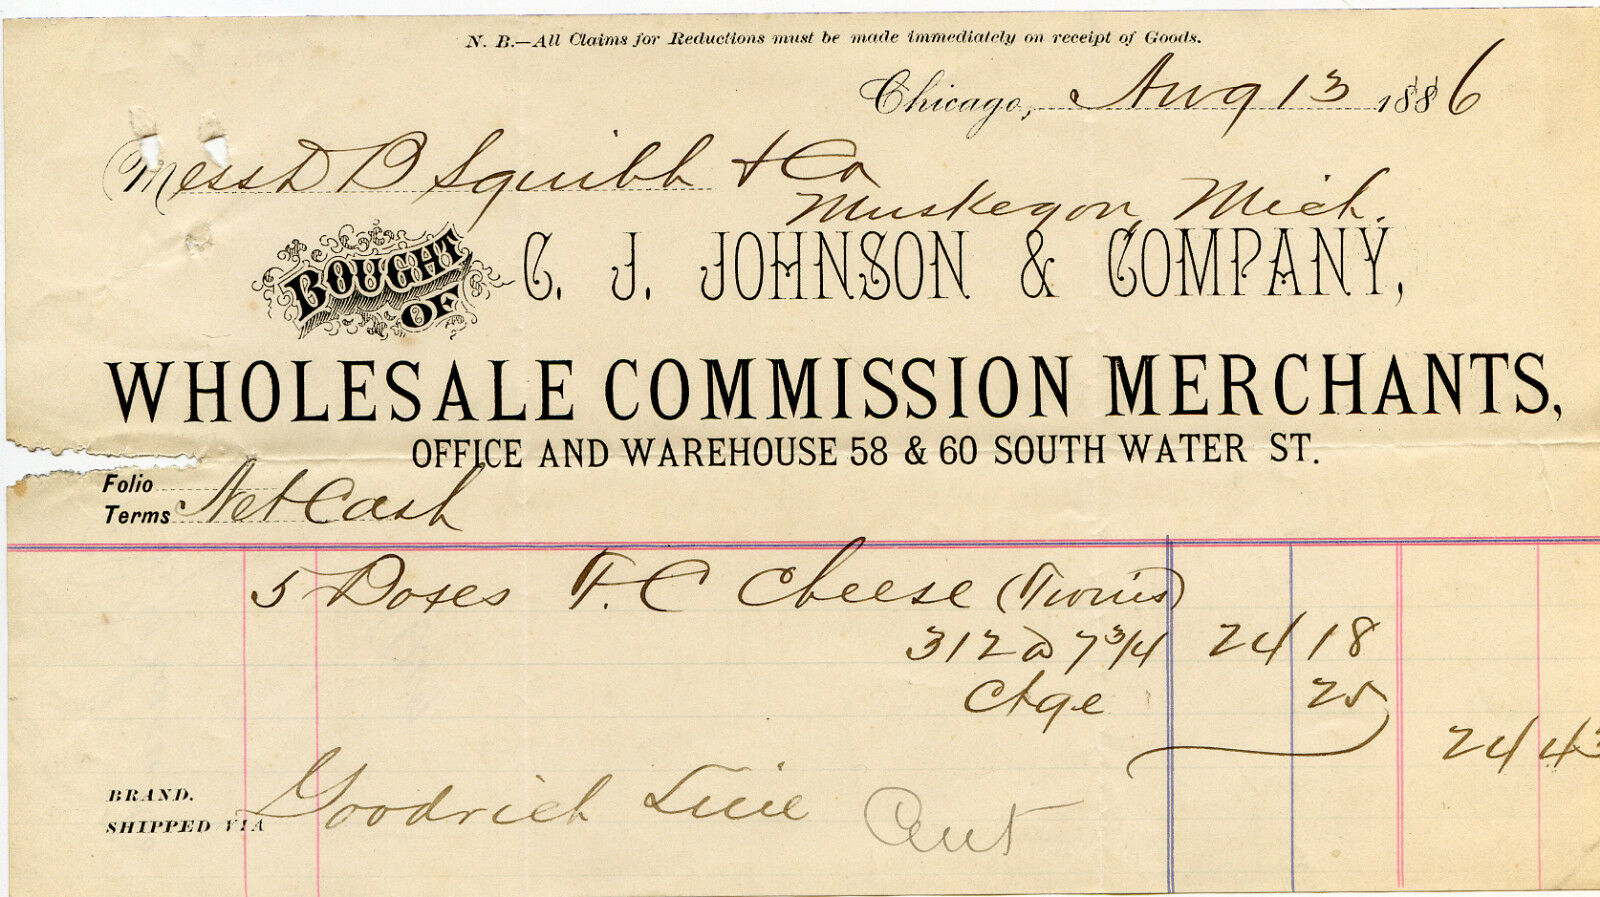 N. B.—All Claims for Reductions must be made immediately on receipt of Goods.
Chicago, Aug 13 1886
Mess D B Squibb & Co
Muskegon, Mich.
BOUGHT OF C. J. JOHNSON & COMPANY,
WHOLESALE COMMISSION MERCHANTS,
OFFICE AND WAREHOUSE 58 & 60 SOUTH WATER ST.
Folio
Terms Net Cash
5 Boxes F. C Cheese (Twins)
312 @ 7 3/4 24 18
Ctge 25
24 43
BRAND.
SHIPPED VIA Goodrich Line